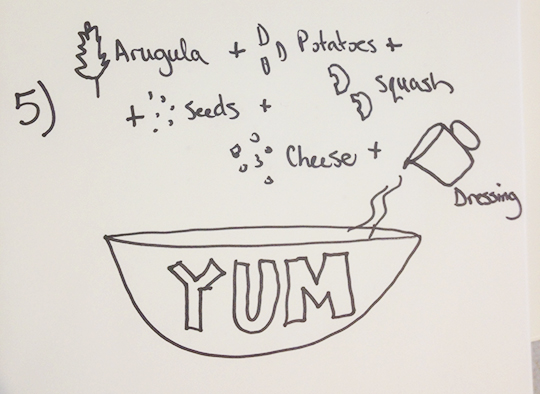 5)
Arugula + Potatoes +
squash
+ Seeds +
Cheese +
Dressing
YUM